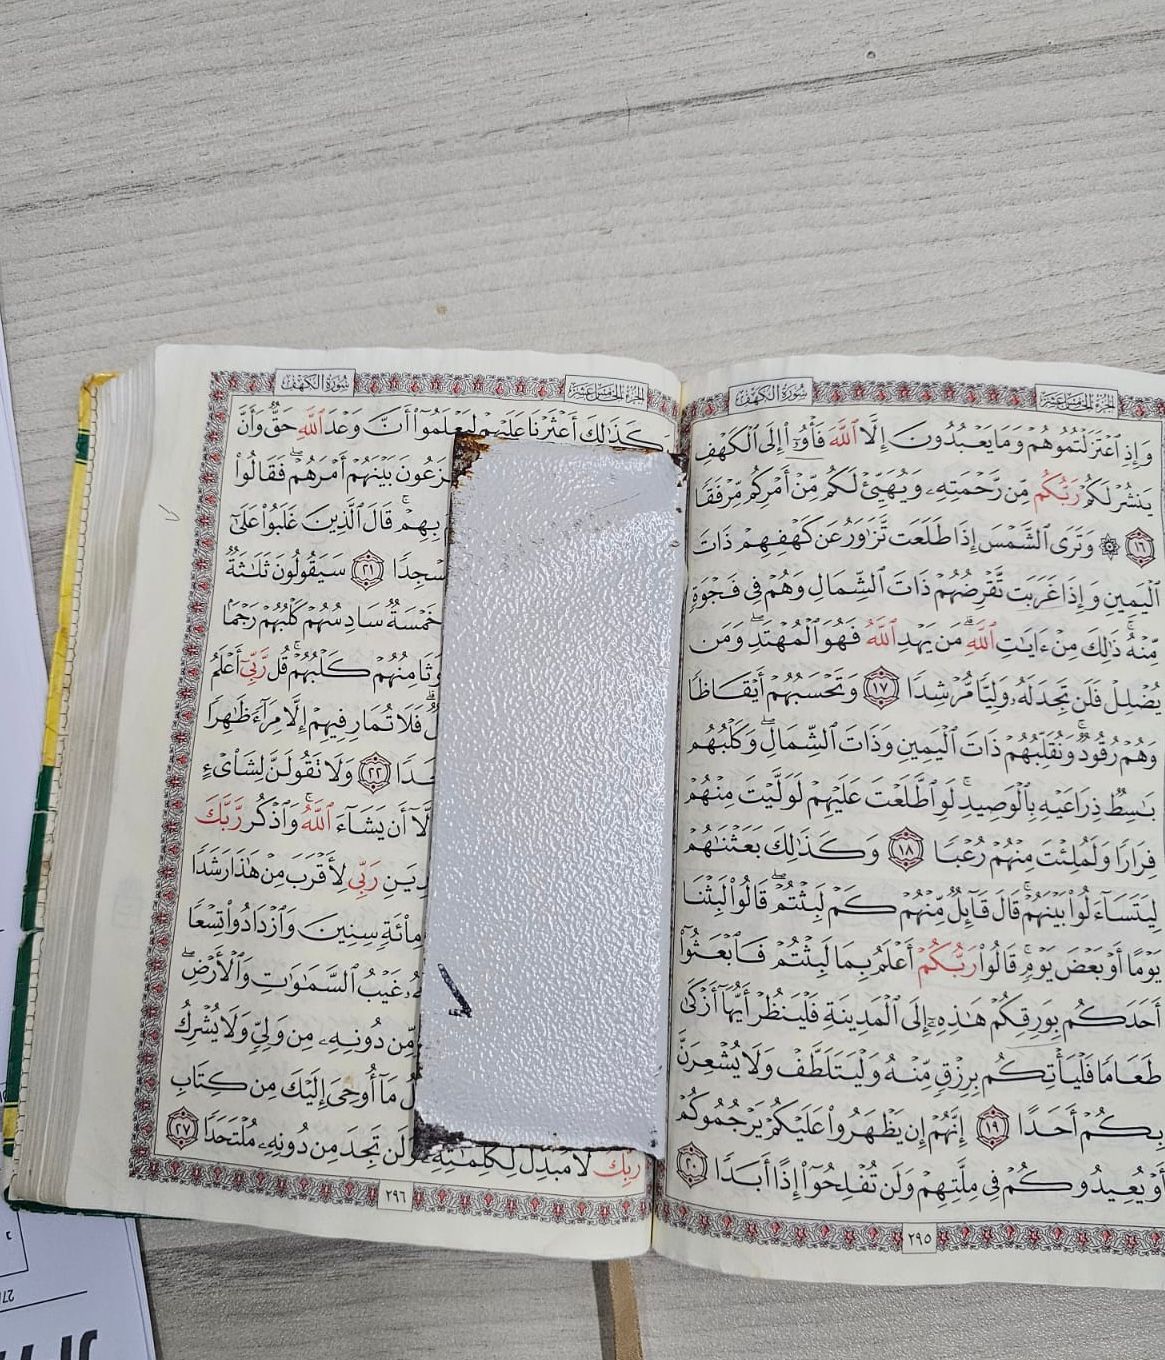 سُورَةُ الكَهْف
الجُزءُ الخَامِسَ عَشَرَ
وَإِذِ ٱعْتَزَلْتُمُوهُمْ وَمَا يَعْبُدُونَ إِلَّا ٱللَّهَ فَأْوُۥٓا۟ إِلَى ٱلْكَهْفِ
يَنشُرْ لَكُمْ رَبُّكُم مِّن رَّحْمَتِهِۦ وَيُهَيِّئْ لَكُم مِّنْ أَمْرِكُم مِّرْفَقًا
١٦ ۞ وَتَرَى ٱلشَّمْسَ إِذَا طَلَعَت تَّزَٰوَرُ عَن كَهْفِهِمْ ذَاتَ
ٱلْيَمِينِ وَإِذَا غَرَبَت تَّقْرِضُهُمْ ذَاتَ ٱلشِّمَالِ وَهُمْ فِى فَجْوَةٍ
مِّنْهُ ۚ ذَٰلِكَ مِنْ ءَايَٰتِ ٱللَّهِ ۗ مَن يَهْدِ ٱللَّهُ فَهُوَ ٱلْمُهْتَدِ ۖ وَمَن
يُضْلِلْ فَلَن تَجِدَ لَهُۥ وَلِيًّا مُّرْشِدًا ١٧ وَتَحْسَبُهُمْ أَيْقَاظًا
وَهُمْ رُقُودٌ ۚ وَنُقَلِّبُهُمْ ذَاتَ ٱلْيَمِينِ وَذَاتَ ٱلشِّمَالِ ۖ وَكَلْبُهُم
بَٰسِطٌ ذِرَاعَيْهِ بِٱلْوَصِيدِ ۚ لَوِ ٱطَّلَعْتَ عَلَيْهِمْ لَوَلَّيْتَ مِنْهُمْ
فِرَارًا وَلَمُلِئْتَ مِنْهُمْ رُعْبًا ١٨ وَكَذَٰلِكَ بَعَثْنَٰهُمْ
لِيَتَسَآءَلُوا۟ بَيْنَهُمْ ۚ قَالَ قَآئِلٌ مِّنْهُمْ كَمْ لَبِثْتُمْ ۖ قَالُوا۟ لَبِثْنَا
يَوْمًا أَوْ بَعْضَ يَوْمٍ ۚ قَالُوا۟ رَبُّكُمْ أَعْلَمُ بِمَا لَبِثْتُمْ فَٱبْعَثُوٓا۟
أَحَدَكُم بِوَرِقِكُمْ هَٰذِهِۦٓ إِلَى ٱلْمَدِينَةِ فَلْيَنظُرْ أَيُّهَآ أَزْكَىٰ
طَعَامًا فَلْيَأْتِكُم بِرِزْقٍ مِّنْهُ وَلْيَتَلَطَّفْ وَلَا يُشْعِرَنَّ
بِكُمْ أَحَدًا ١٩ إِنَّهُمْ إِن يَظْهَرُوا۟ عَلَيْكُمْ يَرْجُمُوكُمْ
أَوْ يُعِيدُوكُمْ فِى مِلَّتِهِمْ وَلَن تُفْلِحُوٓا۟ إِذًا أَبَدًا ٢٠
٢٩٥
الجُزءُ الخَامِسَ عَشَرَ
سُورَةُ الكَهْف
وَكَذَٰلِكَ أَعْثَرْنَا عَلَيْهِمْ لِيَعْلَمُوٓا۟ أَنَّ وَعْدَ ٱللَّهِ حَقٌّ وَأَنَّ
بَيْنَهُمْ أَمْرَهُمْ ۖ فَقَالُوا۟
بِهِمْ ۚ قَالَ ٱلَّذِينَ غَلَبُوا۟ عَلَىٰٓ
٢١ سَيَقُولُونَ ثَلَٰثَةٌ
خَمْسَةٌ سَادِسُهُمْ كَلْبُهُمْ رَجْمًۢا
وَثَامِنُهُمْ كَلْبُهُمْ ۚ قُل رَّبِّىٓ أَعْلَمُ
فَلَا تُمَارِ فِيهِمْ إِلَّا مِرَآءً ظَٰهِرًا
٢٢ وَلَا تَقُولَنَّ لِشَا۟ىْءٍ
أَن يَشَآءَ ٱللَّهُ ۚ وَٱذْكُر رَّبَّكَ
رَبِّى لِأَقْرَبَ مِنْ هَٰذَا رَشَدًا
مِا۟ئَةٍ سِنِينَ وَٱزْدَادُوا۟ تِسْعًا
غَيْبُ ٱلسَّمَٰوَٰتِ وَٱلْأَرْضِ ۖ
مِّن دُونِهِۦ مِن وَلِىٍّ وَلَا يُشْرِكُ
مَآ أُوحِىَ إِلَيْكَ مِن كِتَابِ
رَبِّكَ لَا مُبَدِّلَ لِكَلِمَٰتِهِۦ وَلَن تَجِدَ مِن دُونِهِۦ مُلْتَحَدًا ٢٧
٢٩٦